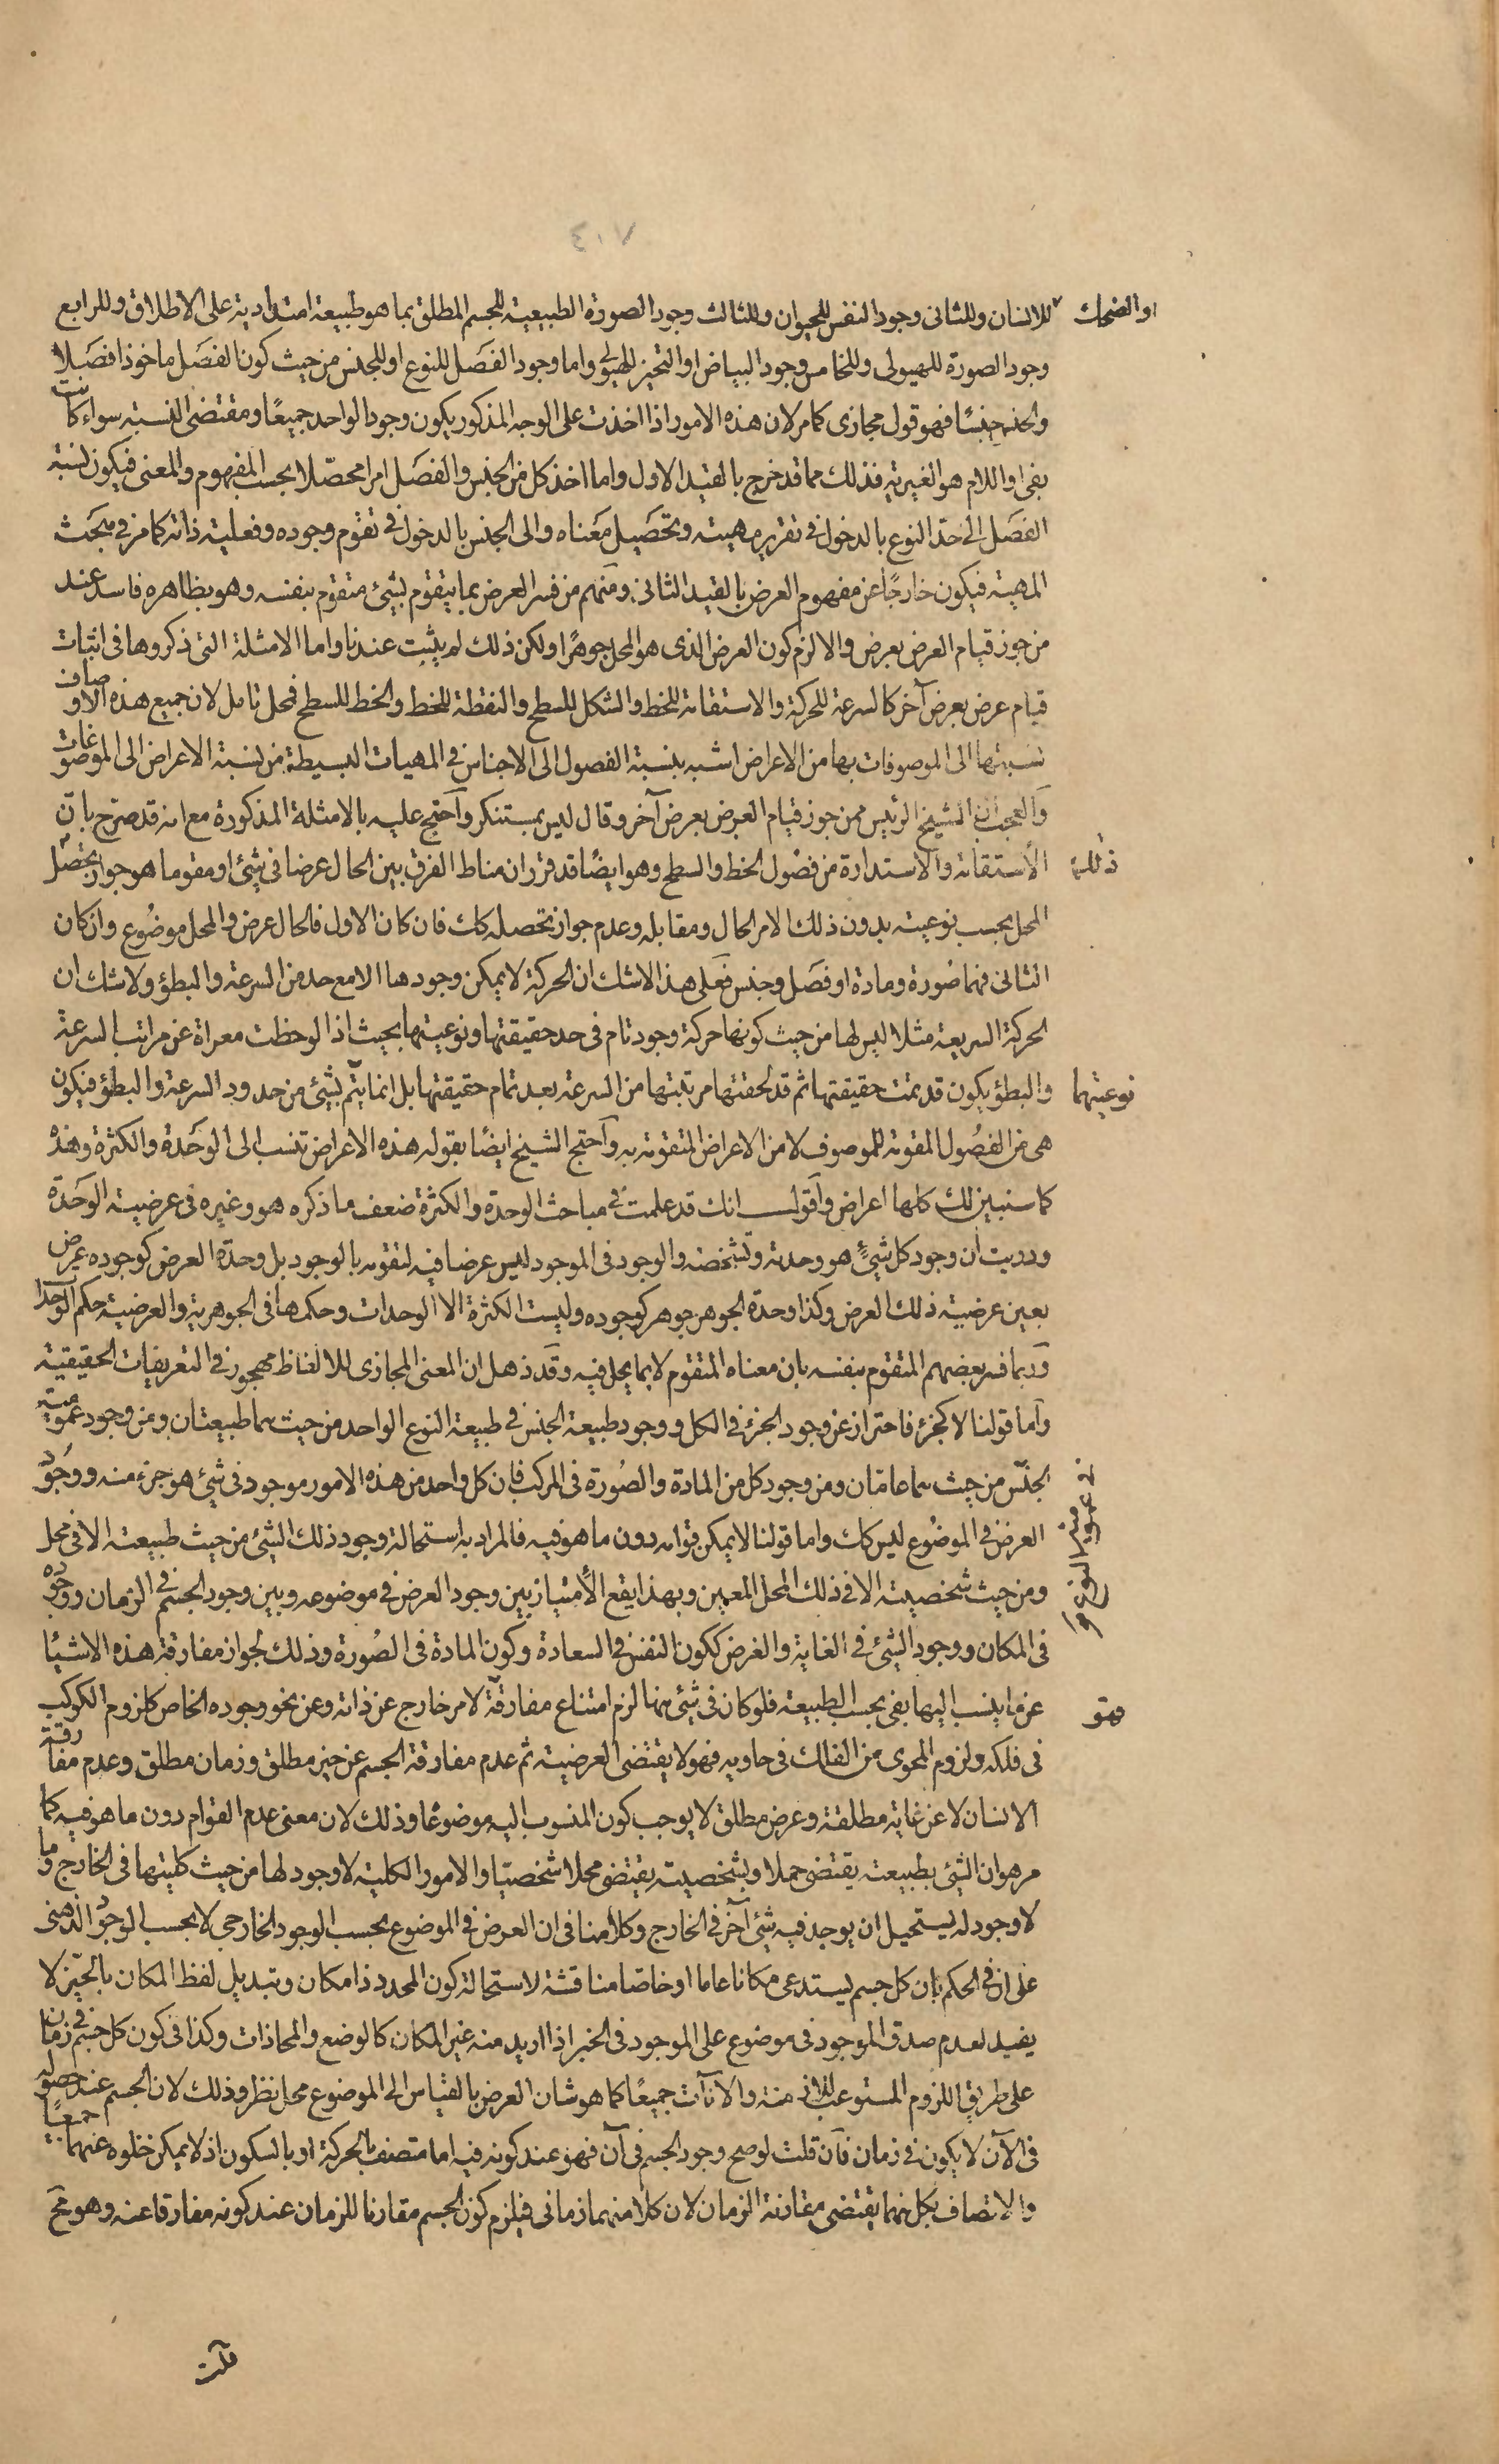 ٤٠٧
او الضحك للانسان وللثانى وجود النفس للحيوان وللثالث وجود الصورة الطبيعية للجسم المطلق بما هو طبيعة امتدادية على الاطلاق وللرابع
وجود الصورة للهيولى وللخامس وجود البياض او التحيز للهيولى واما وجود الفصل للنوع او للجنس من حيث كون الفصل ماخوذا فصلا
والجنس جنسًا فهو قول مجازى كما مر لان هذه الامور اذا اخذت على الوجه المذكور يكون وجود الواحد جميعًا ومقتضى النسبة سواء كانت
بفى او اللام هو الغيرية فذلك مما قد خرج بالقيد الاول واما اخذ كل من الجنس والفصل امرا محصّلا بحسب المفهوم والمعنى فيكون نسبة
الفصل الى حد النوع بالدخول فى تقرير مهيته وتحصيل معناه والى الجنس بالدخول فى تقوم وجوده وفعلية ذاته كما مر فى مبحث
المهية فيكون خارجًا عن مفهوم العرض بالقيد الثانى ومنهم من فسر العرض بما يتقوم بشئ متقوم بنفسه وهو بظاهره فاسد عند
من جوز قيام العرض بعرض والا لزم كون العرض الذى هو المحل جوهرًا ولكن ذلك لم يثبت عندنا واما الامثلة التى ذكروها فى اثبات
قيام عرض بعرض آخر كالسرعة للحركة والاستقامة للخط والشكل للسطح والنقطة للخط والخط للسطح فمحل تامل لان جميع هذه الاوصاف
نسبتها الى الموصوفات بها من الاعراض اشبه بنسبة الفصول الى الاجناس فى المهيات البسيطة من نسبة الاعراض الى الموضوعات
والعجب ان الشيخ الرئيس ممن جوز قيام العرض بعرض آخر وقال ليس بمستنكر واحتج عليه بالامثلة المذكورة مع انه قد صرح بانّ
الاستقامة والاستدارة من فصول الخط والسطح وهو ايضًا قد قرر ان مناط الفرق بين الحال عرضا فى شئ او مقوما هو جواز تحصّل
ذلك
المحل بحسب نوعيته بدون ذلك الامر الحال ومقابله وعدم جواز تحصله كك فان كان الاول فالحال عرض والمحل موضوع وان كان
الثانى فهما صورة ومادة او فصل وجنس فعلى هذا لا شك ان الحركة لا يمكن وجودها الا مع حد من السرعة والبطؤ ولا شك ان
الحركة السريعة مثلا ليس لها من حيث كونها حركة وجود تام فى حد حقيقتها ونوعيتها بحيث اذا لوحظت معراة عن مراتب السرعة
والبطؤ يكون قد تمت حقيقتها ثم قد لحقتها مرتبتها من السرعة بعد تمام حقيقتها بل انما يتم بشئ من حدود السرعة والبطؤ فيكون
نوعيتهما
هى من الفصول المقومة للموصوف لا من الاعراض المتقومة به واحتج الشيخ ايضًا بقوله هذه الاعراض تنسب الى الوحدة والكثرة وهذه
كما سنبين لك كلها اعراض واقول انك قد علمت فى مباحث الوحدة والكثرة ضعف ما ذكره هو وغيره فى عرضية الوحدة
ودريت ان وجود كل شئ هو وحدته وتشخصه والوجود فى الموجود ليس عرضا فيه لتقومه بالوجود بل وحدة العرض كوجوده عرض
بعين عرضية ذلك العرض وكذا وحدة الجوهر جوهر كوجوده وليست الكثرة الا الوحدات وحكمها فى الجوهرية والعرضية حكم الوحدات
وربما فسر بعضهم المتقوم بنفسه بان معناه المتقوم لا بما يحل فيه وقد ذهل ان المعنى المجازى للالفاظ مهجور فى التعريفات الحقيقية
واما قولنا لا كجزء فاحتراز عن وجود الجزء فى الكل ووجود طبيعة الجنس فى طبيعة النوع الواحد من حيث هما طبيعتان وعن وجود عمومية
الجنس من حيث هما عامّان ومن وجود كل من المادة والصورة فى المركب فان كل واحد من هذه الامور موجود فى شئ هو جزء منه ووجود
فى عمومية النوع
العرض فى الموضوع ليس كك واما قولنا لا يمكن قوامه دون ما هو فيه فالمراد به استحالة وجود ذلك الشئ من حيث طبيعته الا فى محل
ومن حيث شخصيته الا فى ذلك المحل المعين وبهذا يقع الامتياز بين وجود العرض فى موضوعه وبين وجود الجسم فى الزمان ووجوده
فى المكان ووجود الشئ فى الغاية والغرض ككون النفس فى السعادة وكون المادة فى الصورة وذلك لجواز مفارقة هذه الاشياء
عن ما ينسب اليها بفى بحسب الطبيعة فلو كان فى شئ منها لزم امتناع مفارقة لامر خارج عن ذاته وعن نحو وجوده الخاص كلزوم الكوكب
فهو
فى فلكه ولزوم المحوى من الفلك فى حاويه فهو لا يقتضى العرضية ثم عدم مفارقة الجسم عن حيز مطلق وزمان مطلق وعدم مفارقة
الانسان لا عن غاية مطلقة وعرض مطلق لا يوجب كون المنسوب اليه موضوعًا وذلك لان معنى عدم القوام دون ما هو فيه كما
مر هو ان الشئ بطبيعته يقتضى حملا وبشخصيته يقتضى محلا شخصيّا والامور الكلية لا وجود لها من حيث كليتها فى الخارج وما
لا وجود له يستحيل ان يوجد فيه شئ آخر فى الخارج وكلامنا فى ان العرض فى الموضوع بحسب الوجود الخارجى لا بحسب الوجود الذهنى
على ان فى الحكم بان كل جسم يستدعى مكانا عاما او خاصّا مناقشة لاستحالة كون المحدد ذا مكان وتبديل لفظ المكان بالحيّز لا
يفيد لعدم صدق الموجود فى موضوع على الموجود فى الخبر اذا اريد منه غير المكان كالوضع والمحاذات وكذا فى كون كل جسم فى زمان
على طريق اللزوم المستوعب للازمنة والآنات جميعًا كما هو شان العرض بالقياس الى الموضوع محل نظر وذلك لان الجسم عند حصوله
فى الآن لا يكون فى زمان فان قلت لو صح وجود الجسم فى آن فهو عند كونه فيه اما متصف بالحركة او بالسكون اذ لا يمكن خلوه عنهما جميعًا
والاتصاف بكل منهما يقتضى مقارنة الزمان لان كلا منهما زمانى فيلزم كون الجسم مقارنا للزمان عند كونه مفارقا عنه وهو مح
قلت